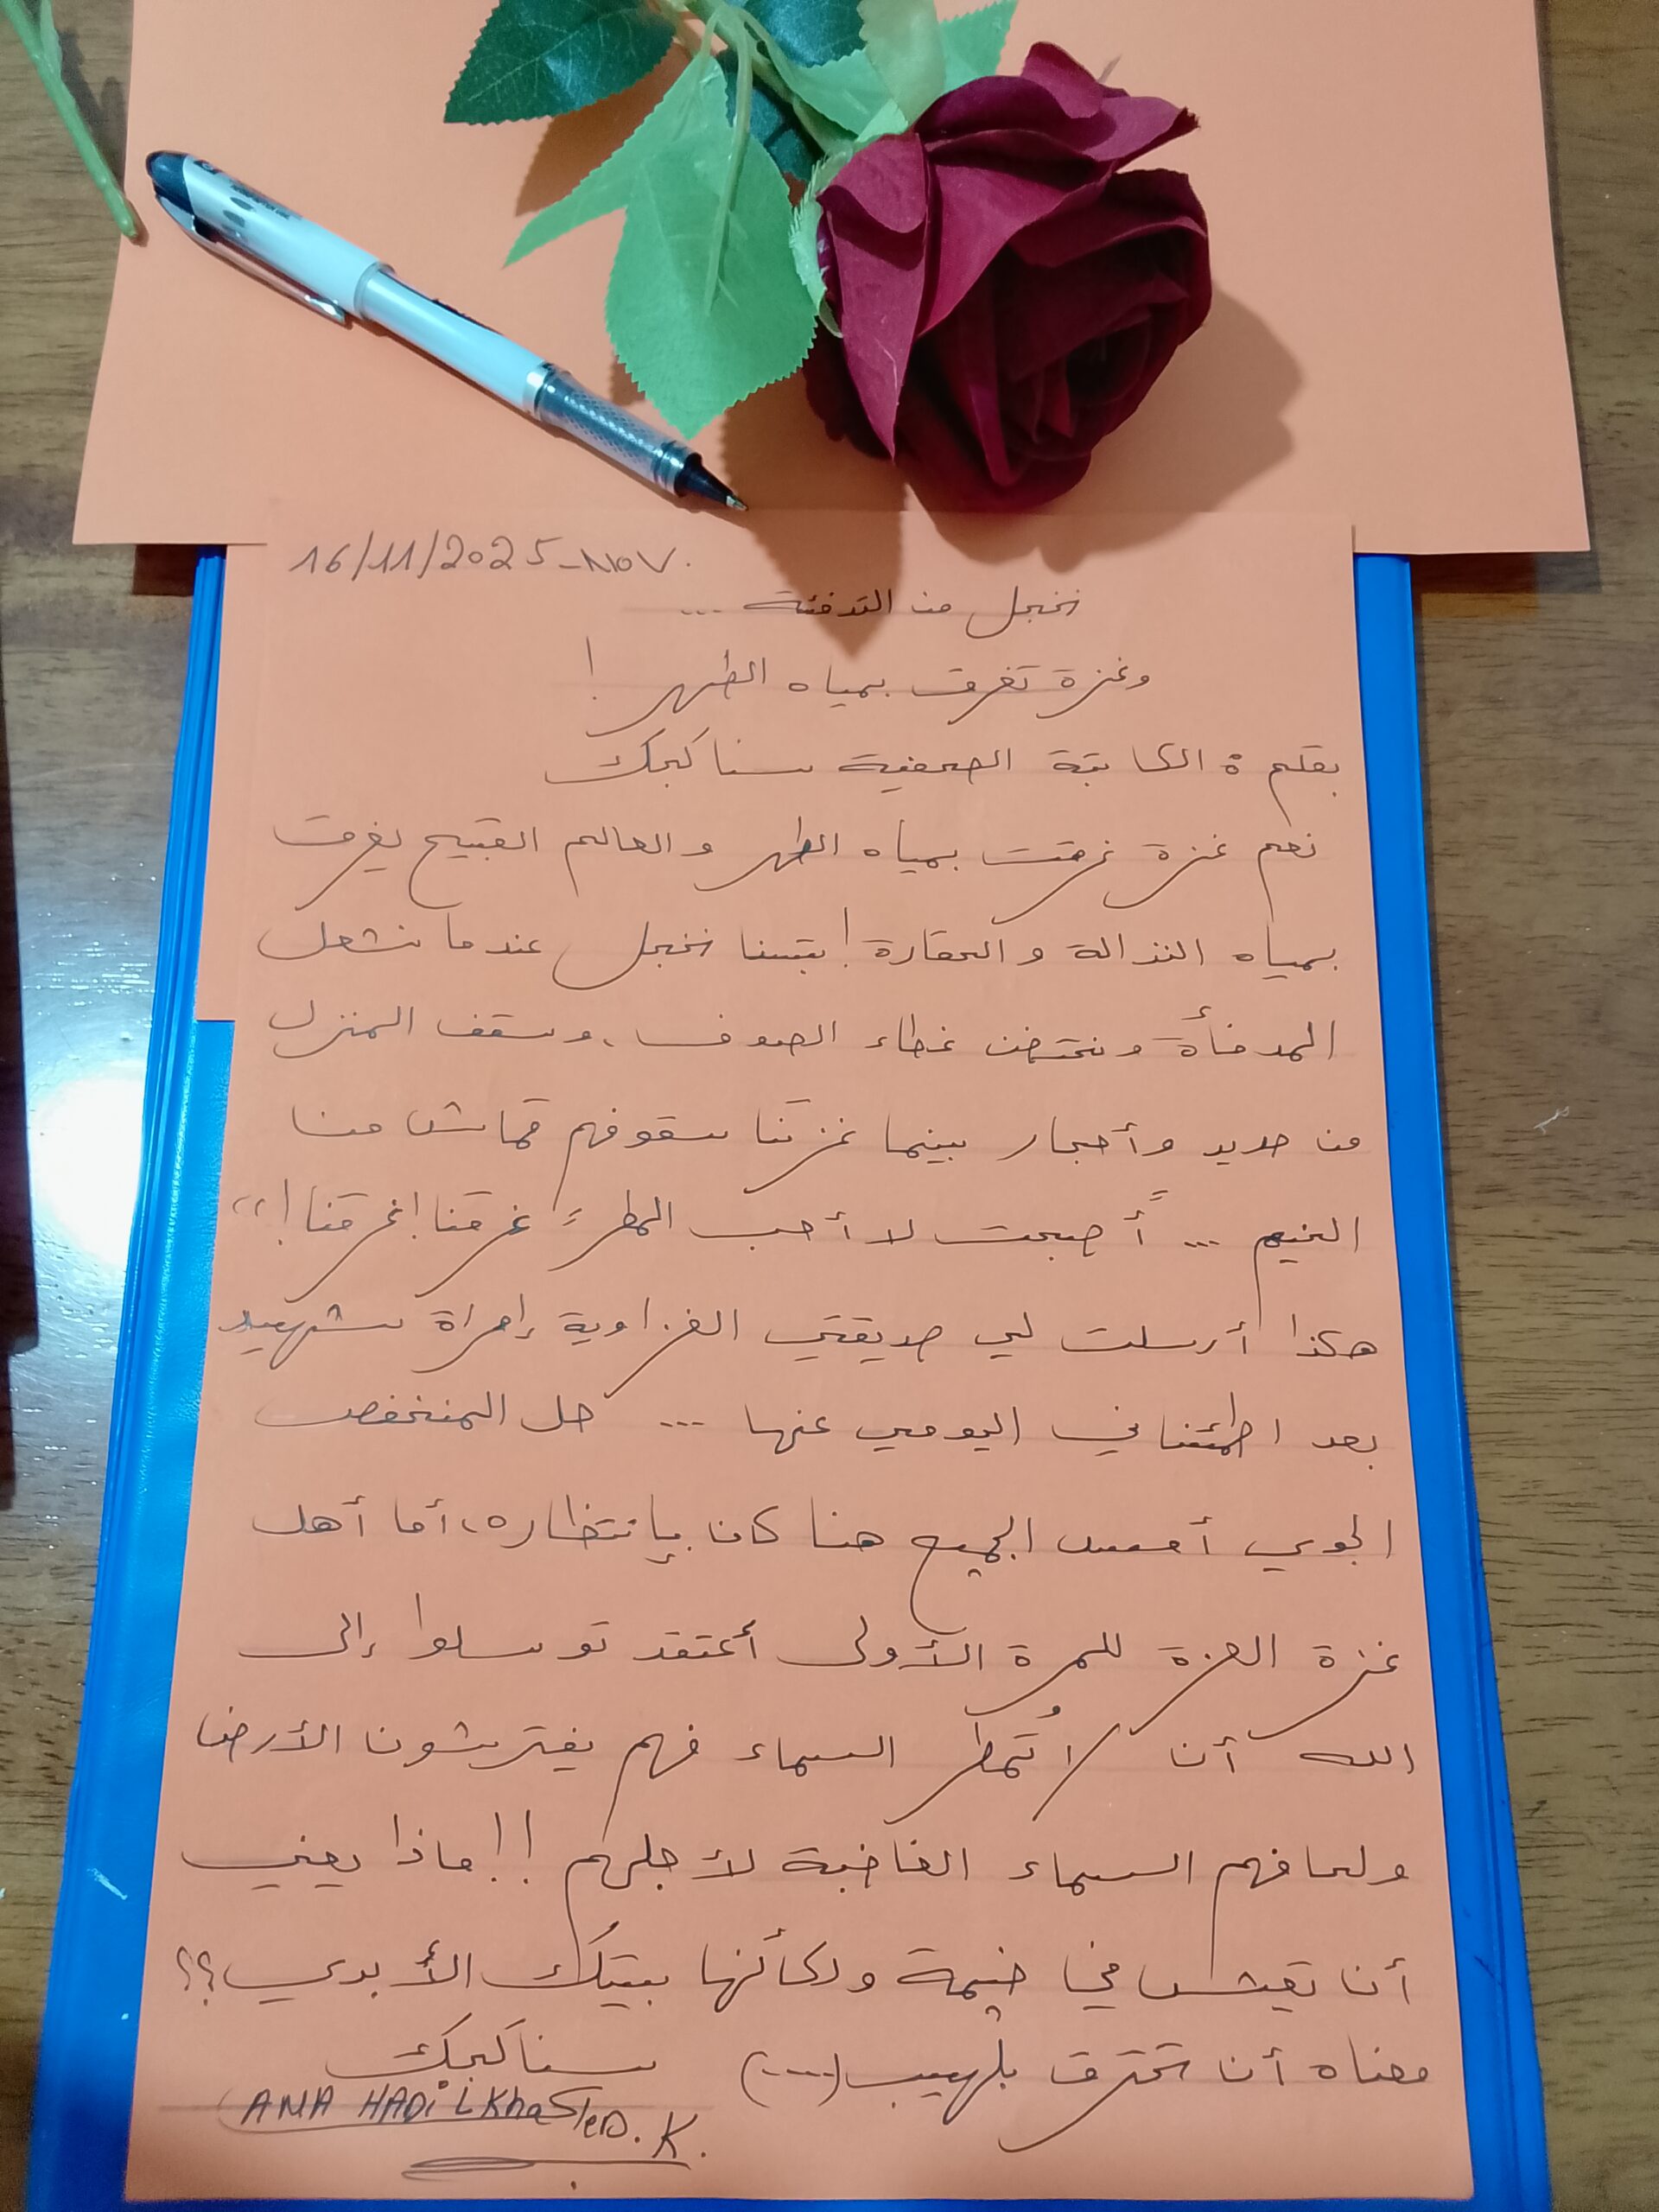 16/11/2025-NOV.
نخجل من التدفئة ...
وغزة تغرق بمياه الطهر !
بقلم ة الكاتبة الصحفية سنا كجك
نعم غزة غرقت بمياه الطهر والعالم القبيح يغرق
بمياه النذالة والحقارة! بتنا نخجل عندما نشعل
المدفأة ونحتضن غطاء الصوف، وسقف المنزل
من حديد وأحجار بينما غزتنا سقوفهم قماش من
الخيم ... "أصبحت لا أحب المطر" غرقنا! غرقنا!"
هكذا أرسلت لي صديقتي الغزاوية إمراة شهيد
بعد اطمئناني اليومي عنها ... حل المنخفض
الجوي أمس الجميع هنا كان بإنتظاره، أما أهل
غزة العزة للمرة الأولى أعتقد توسلوا إلى
الله أن لا تُمطر السماء فهم يفترشون الأرض
ولحافهم السماء الغاضبة لأجلهم !! ماذا يعني
أن تعيش في خيمة وكأنها بيتُك الأبدي؟؟
معناه أن تحترق بلهيب (....) سنا كجك
AMA HADiL KhaSleD. K.